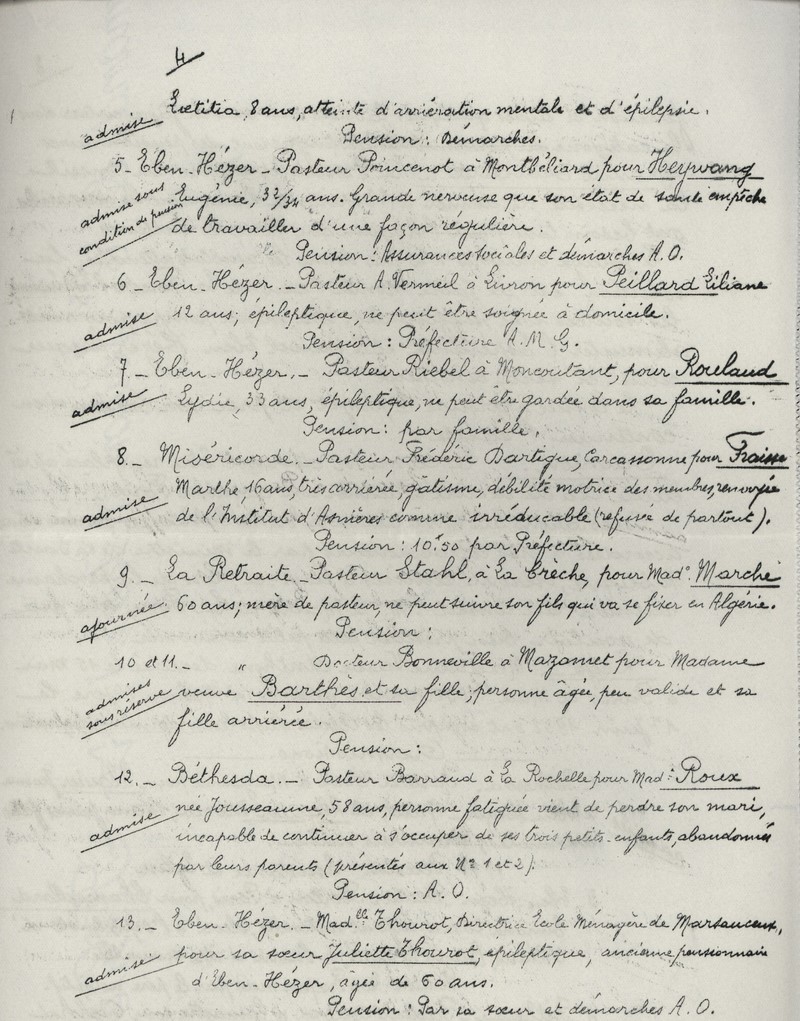 4
Lœtitia, 8 ans, atteinte d'arriération mentale et d'épilepsie.
admise
Pension : Démarches.
5 - Eben-Hézer - Pasteur Poincenot à Montbéliard pour Heywang
admise sous
condition de pension
Eugénie, 32/34 ans. Grande nerveuse que son état de santé empêche
de travailler d'une façon régulière.
Pension : Assurances sociales et démarches A.O.
6 - Eben-Hézer. - Pasteur A. Vermeil à Livron pour Peillard Liliane
admise
12 ans ; épileptique, ne peut être soignée à domicile.
Pension : Préfecture A.M.G.
7. - Eben-Hézer. - Pasteur Riebel à Moncoutant, pour Roulaud
admise
Lydie, 33 ans, épileptique, ne peut être gardée dans sa famille.
Pension : par famille.
8. - Miséricorde. - Pasteur Frédéric Dartigue, Carcassonne pour Fraisse
Marthe 16 ans, très arriérée, gâtisme, débilité motrice des membres, renvoyée
admise
de l'Institut d'Asnières comme irréducable (refusée de partout).
Pension : 10f50 par Préfecture.
9. - La Retraite - Pasteur Stahl, à La Crèche, pour Made Marché
ajournée.
60 ans ; mère de pasteur, ne peut suivre son fils qui va se fixer en Algérie.
Pension :
10 et 11. - " Docteur Bonneville à Mazamet pour Madame
admises
sous réserve
veuve Barthès et sa fille ; personne âgée, peu valide et sa
fille arriérée.
Pension :
12. - Béthesda. - Pasteur Barraud à La Rochelle pour Made Roux
née Jousseaume, 58 ans, personne fatiguée vient de perdre son mari,
admise
incapable de continuer à s'occuper de ses trois petits-enfants, abandonnés
par leurs parents (présentés aux Nos 1 et 2).
Pension : A.O.
13. - Eben-Hézer. - Madlle Thourot, Directrice Ecole Ménagère de Marsauceux,
pour sa sœur Juliette Thourot, épileptique, ancienne pensionnaire
admise
d'Eben-Hézer, âgée de 60 ans.
Pension : Par sa sœur et démarches A.O.